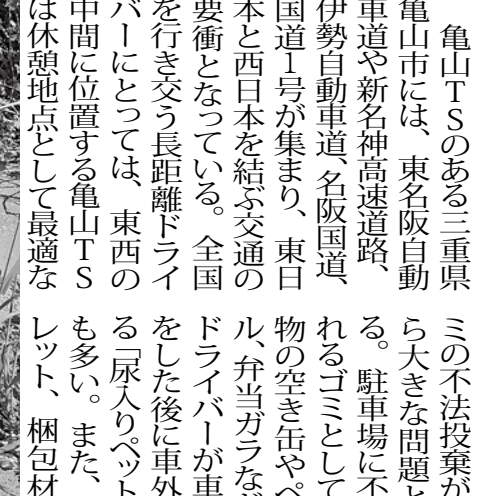 亀山TSのある三重県
亀山市には、東名阪自動
車道や新名神高速道路、
伊勢自動車道、名阪国道、
国道1号が集まり、東日
本と西日本を結ぶ交通の
要衝となっている。全国
を行き交う長距離ドライ
バーにとっては、東西の
中間に位置する亀山TS
は休憩地点として最適な
ミの不法投棄が
ら大きな問題と
る。駐車場に不
れるゴミとして
物の空き缶やペ
ル、弁当ガラなど
ドライバーが車
をした後に車外
る「尿入りペット
も多い。また、
レット、梱包材